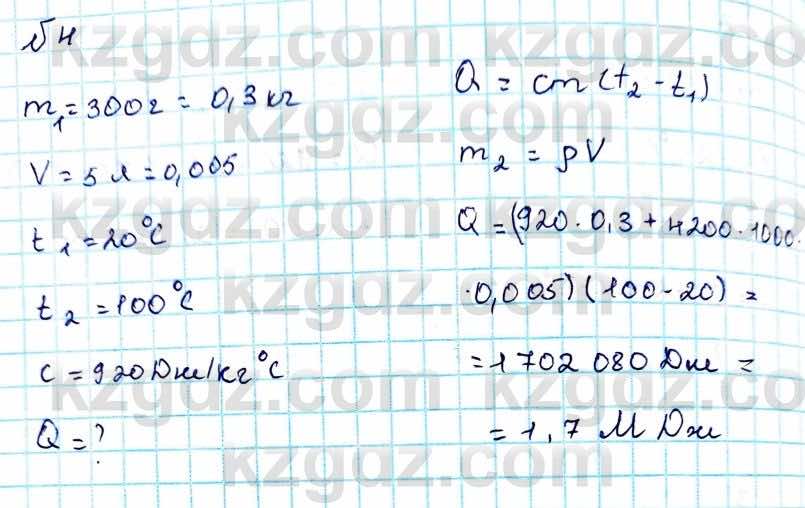 №4
m₁ = 300г = 0,3 кг
V = 5 л = 0,005
t₁ = 20°C
t₂ = 100°C
c = 920 Дж/кг°C
Q = ?
Q = cm(t₂ - t₁)
m₂ = ρV
Q = (920 · 0,3 + 4200 · 1000 ·
· 0,005)(100 - 20) =
= 1 702 080 Дж =
= 1,7 М Дж
kzgdz.com kzgdz.com
kzgdz.com
kzgdz.com kzgdz.com
kzgdz.com
kzgdz.com kzgdz.com
kzgdz.com